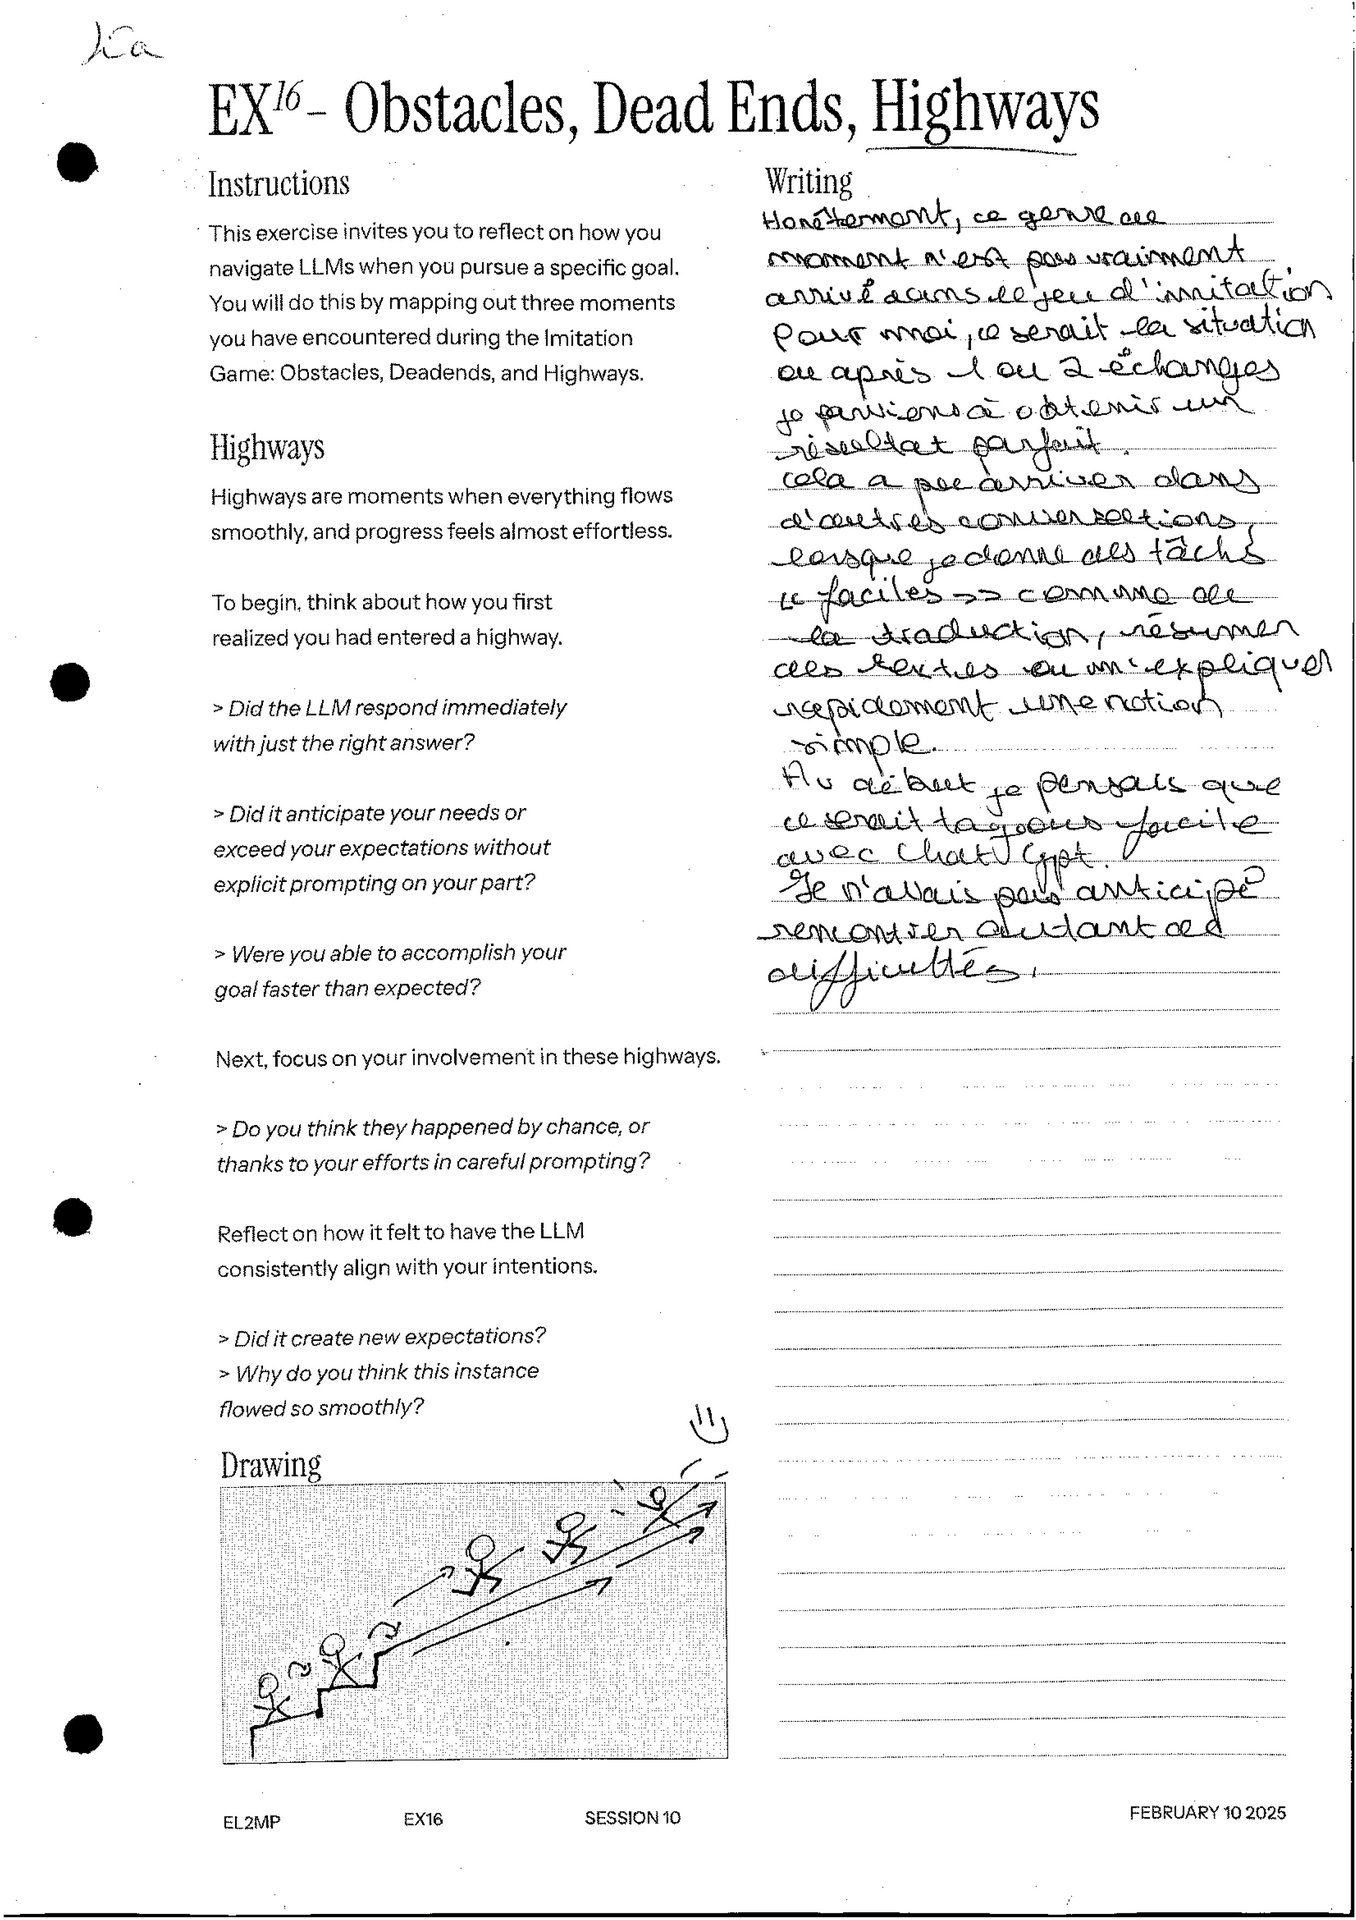 EX16 – Obstacles, Dead Ends, Highways
Instructions
This exercise invites you to reflect on how you
navigate LLMs when you pursue a specific goal.
You will do this by mapping out three moments
you have encountered during the Imitation
Game: Obstacles, Deadends, and Highways.
Highways
Highways are moments when everything flows
smoothly, and progress feels almost effortless.
To begin, think about how you first
realized you had entered a highway.
> Did the LLM respond immediately
with just the right answer?
> Did it anticipate your needs or
exceed your expectations without
explicit prompting on your part?
> Were you able to accomplish your
goal faster than expected?
Next, focus on your involvement in these highways.
> Do you think they happened by chance, or
thanks to your efforts in careful prompting?
Reflect on how it felt to have the LLM
consistently align with your intentions.
> Did it create new expectations?
> Why do you think this instance
flowed so smoothly?
Drawing
Writing
Honêtement, ce genre de
moment n'est pas vraiment
arrivé dans le jeu d'imitation
Pour moi, ce serait la situation
ou après 1 ou 2 échanges
je parviens à obtenir un
résultat parfait.
cela a pu arriver dans
d'autres conversations,
lorsque je donne des tâches
<< faciles >> comme de
la traduction, résumer
des textes ou m'expliquer
rapidement une notion
simple.
Au début je pensais que
ce serait facile
avec Chat Gpt.
Je n'avais pas anticipé
rencontrer autant de
difficultés.
EL2MP EX16 SESSION 10 FEBRUARY 10 2025